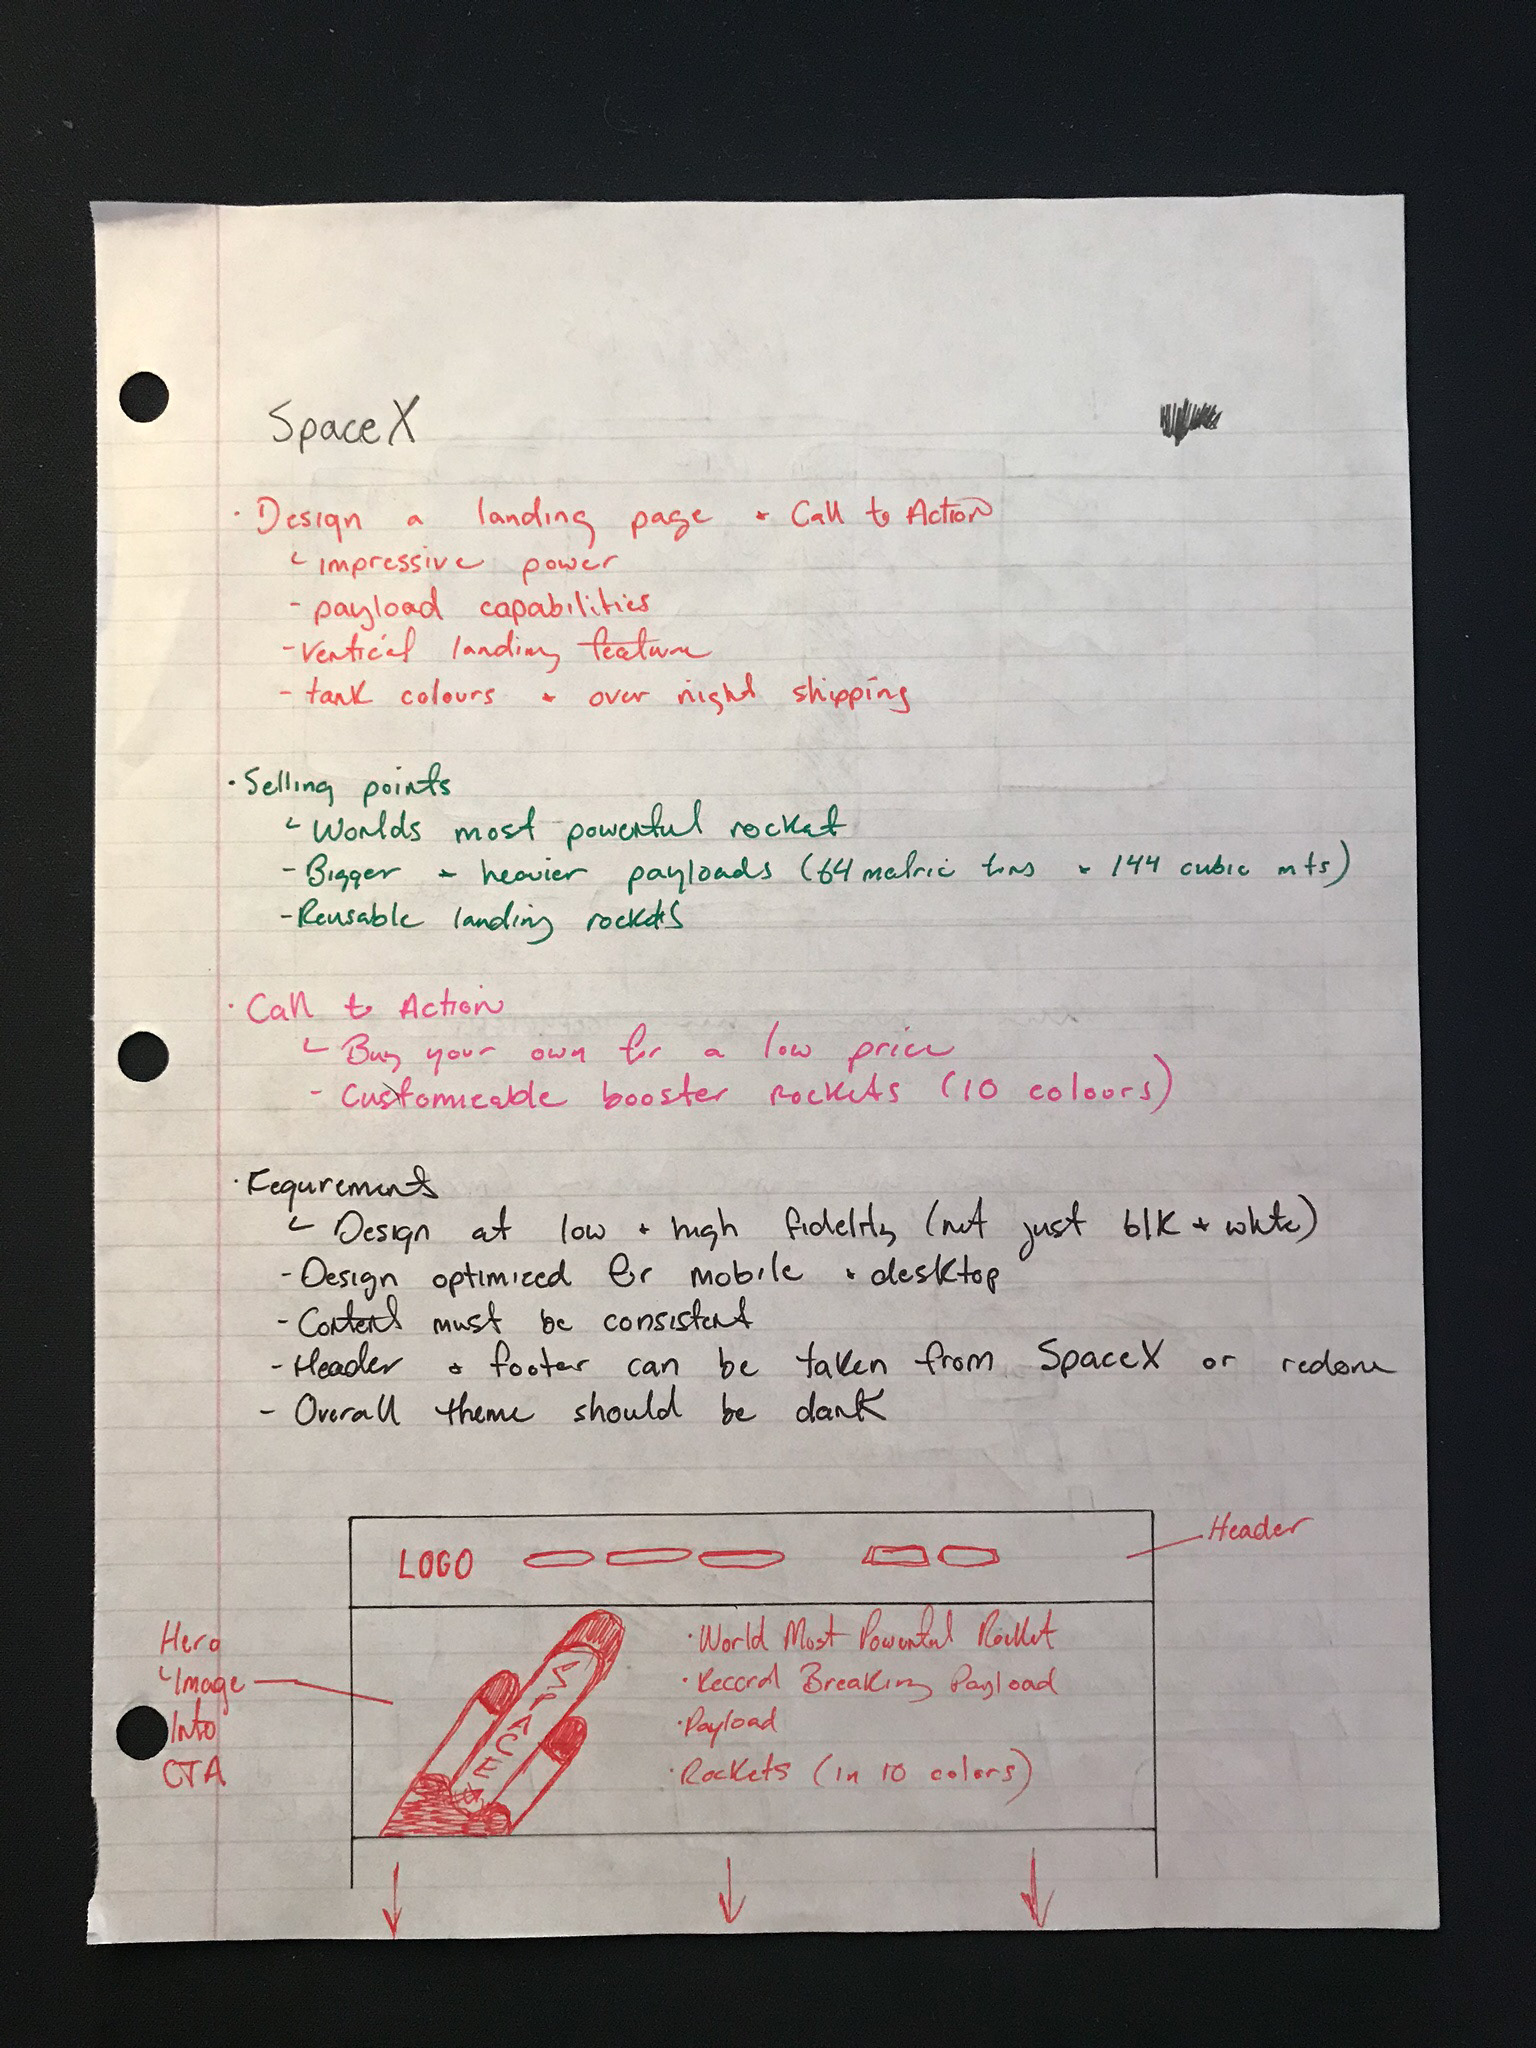 SpaceX
· Design a landing page + Call to Action
└ impressive power
- payload capabilities
- vertical landing feature
- tank colours + over night shipping
· Selling points
└ Worlds most powerful rocket
- Bigger + heavier payloads (64 metric tons + 144 cubic mts)
- Reusable landing rockets
· Call to Action
└ Buy your own for a low price
- Customizeable booster rockets (10 colours)
· Requrements
└ Design at low + high fidelity (not just blk + white)
- Design optimized for mobile + desktop
- Content must be consistent
- Header + footer can be taken from SpaceX or redone
- Overall theme should be dark
Header
LOGO
Hero
└Image
Into
CTA
SPACEX
· World Most Powerful Rocket
· Record Breaking Payload
· Payload
· Rockets (in 10 colors)